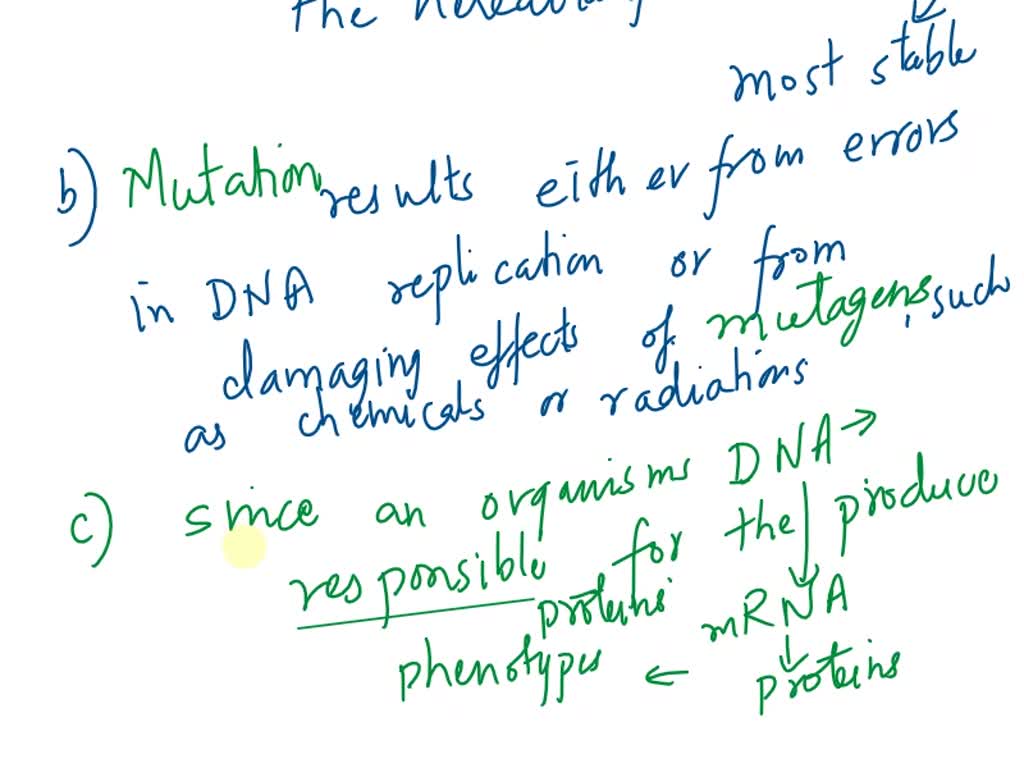 the
most stable
b) Mutation results either from errors
in DNA replication or from
damaging effects of mutagens, such
as chemicals or radiations
c) since an organisms DNA →
responsible for the produce
proteins mRNA
phenotypes ← proteins